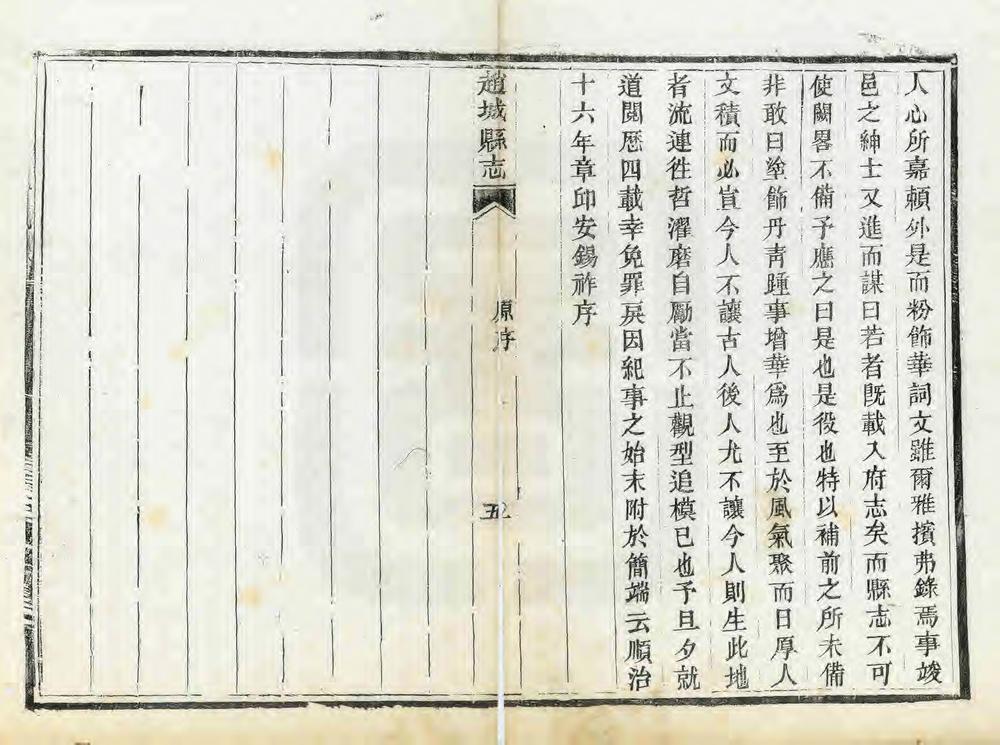 人心所嘉賴外是而粉飾華詞文雖爾雅擯弗錄焉事竣
邑之紳士又進而謀曰若者旣載入府志矣而縣志不可
使闕畧不備予應之曰是也是役也特以補前之所未備
非敢曰塗飾丹青踵事增華爲也至於風氣聚而日厚人
文積而必宣今人不讓古人後人尤不讓今人則生此地
者流連徃哲濯磨自勵當不止觀型追模已也予旦夕就
道閱歷四載幸免罪戾因紀事之始末附於簡端云順治
十六年章卽安錫祚序
趙城縣志
原序
五